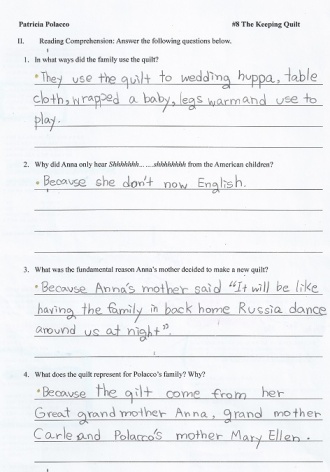 Patricia Polacco #8 The Keeping Quilt
II. Reading Comprehension: Answer the following questions below.
1. In what ways did the family use the quilt?
• They use the quilt to wedding huppa, table
cloth, wrapped a baby, legs warmand use to
play.
2. Why did Anna only hear Shhhhhhh……shhhhhhhh from the American children?
• Because she don't now English.
3. What was the fundamental reason Anna's mother decided to make a new quilt?
• Because Anna's mother said "It will be like
having the family in back home Russia dance
around us at night".
4. What does the quilt represent for Polacco's family? Why?
• Because the qilt come from her
Great grandmother Anna, grand mother
Carle and Polacco's mother Mary Ellen.